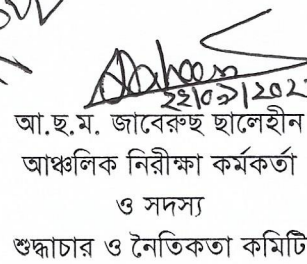 ২২/০১/202
আ.ছ.ম. জাবেরুছ ছালেহীন
আঞ্চলিক নিরীক্ষা কর্মকর্তা
ও সদস্য
শুদ্ধাচার ও নৈতিকতা কমিটি